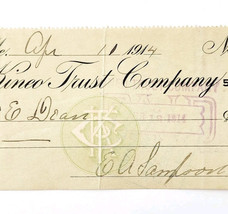 Me. Apr 11 1914 N
Kineo Trust Company
E Dean
E A Sampson